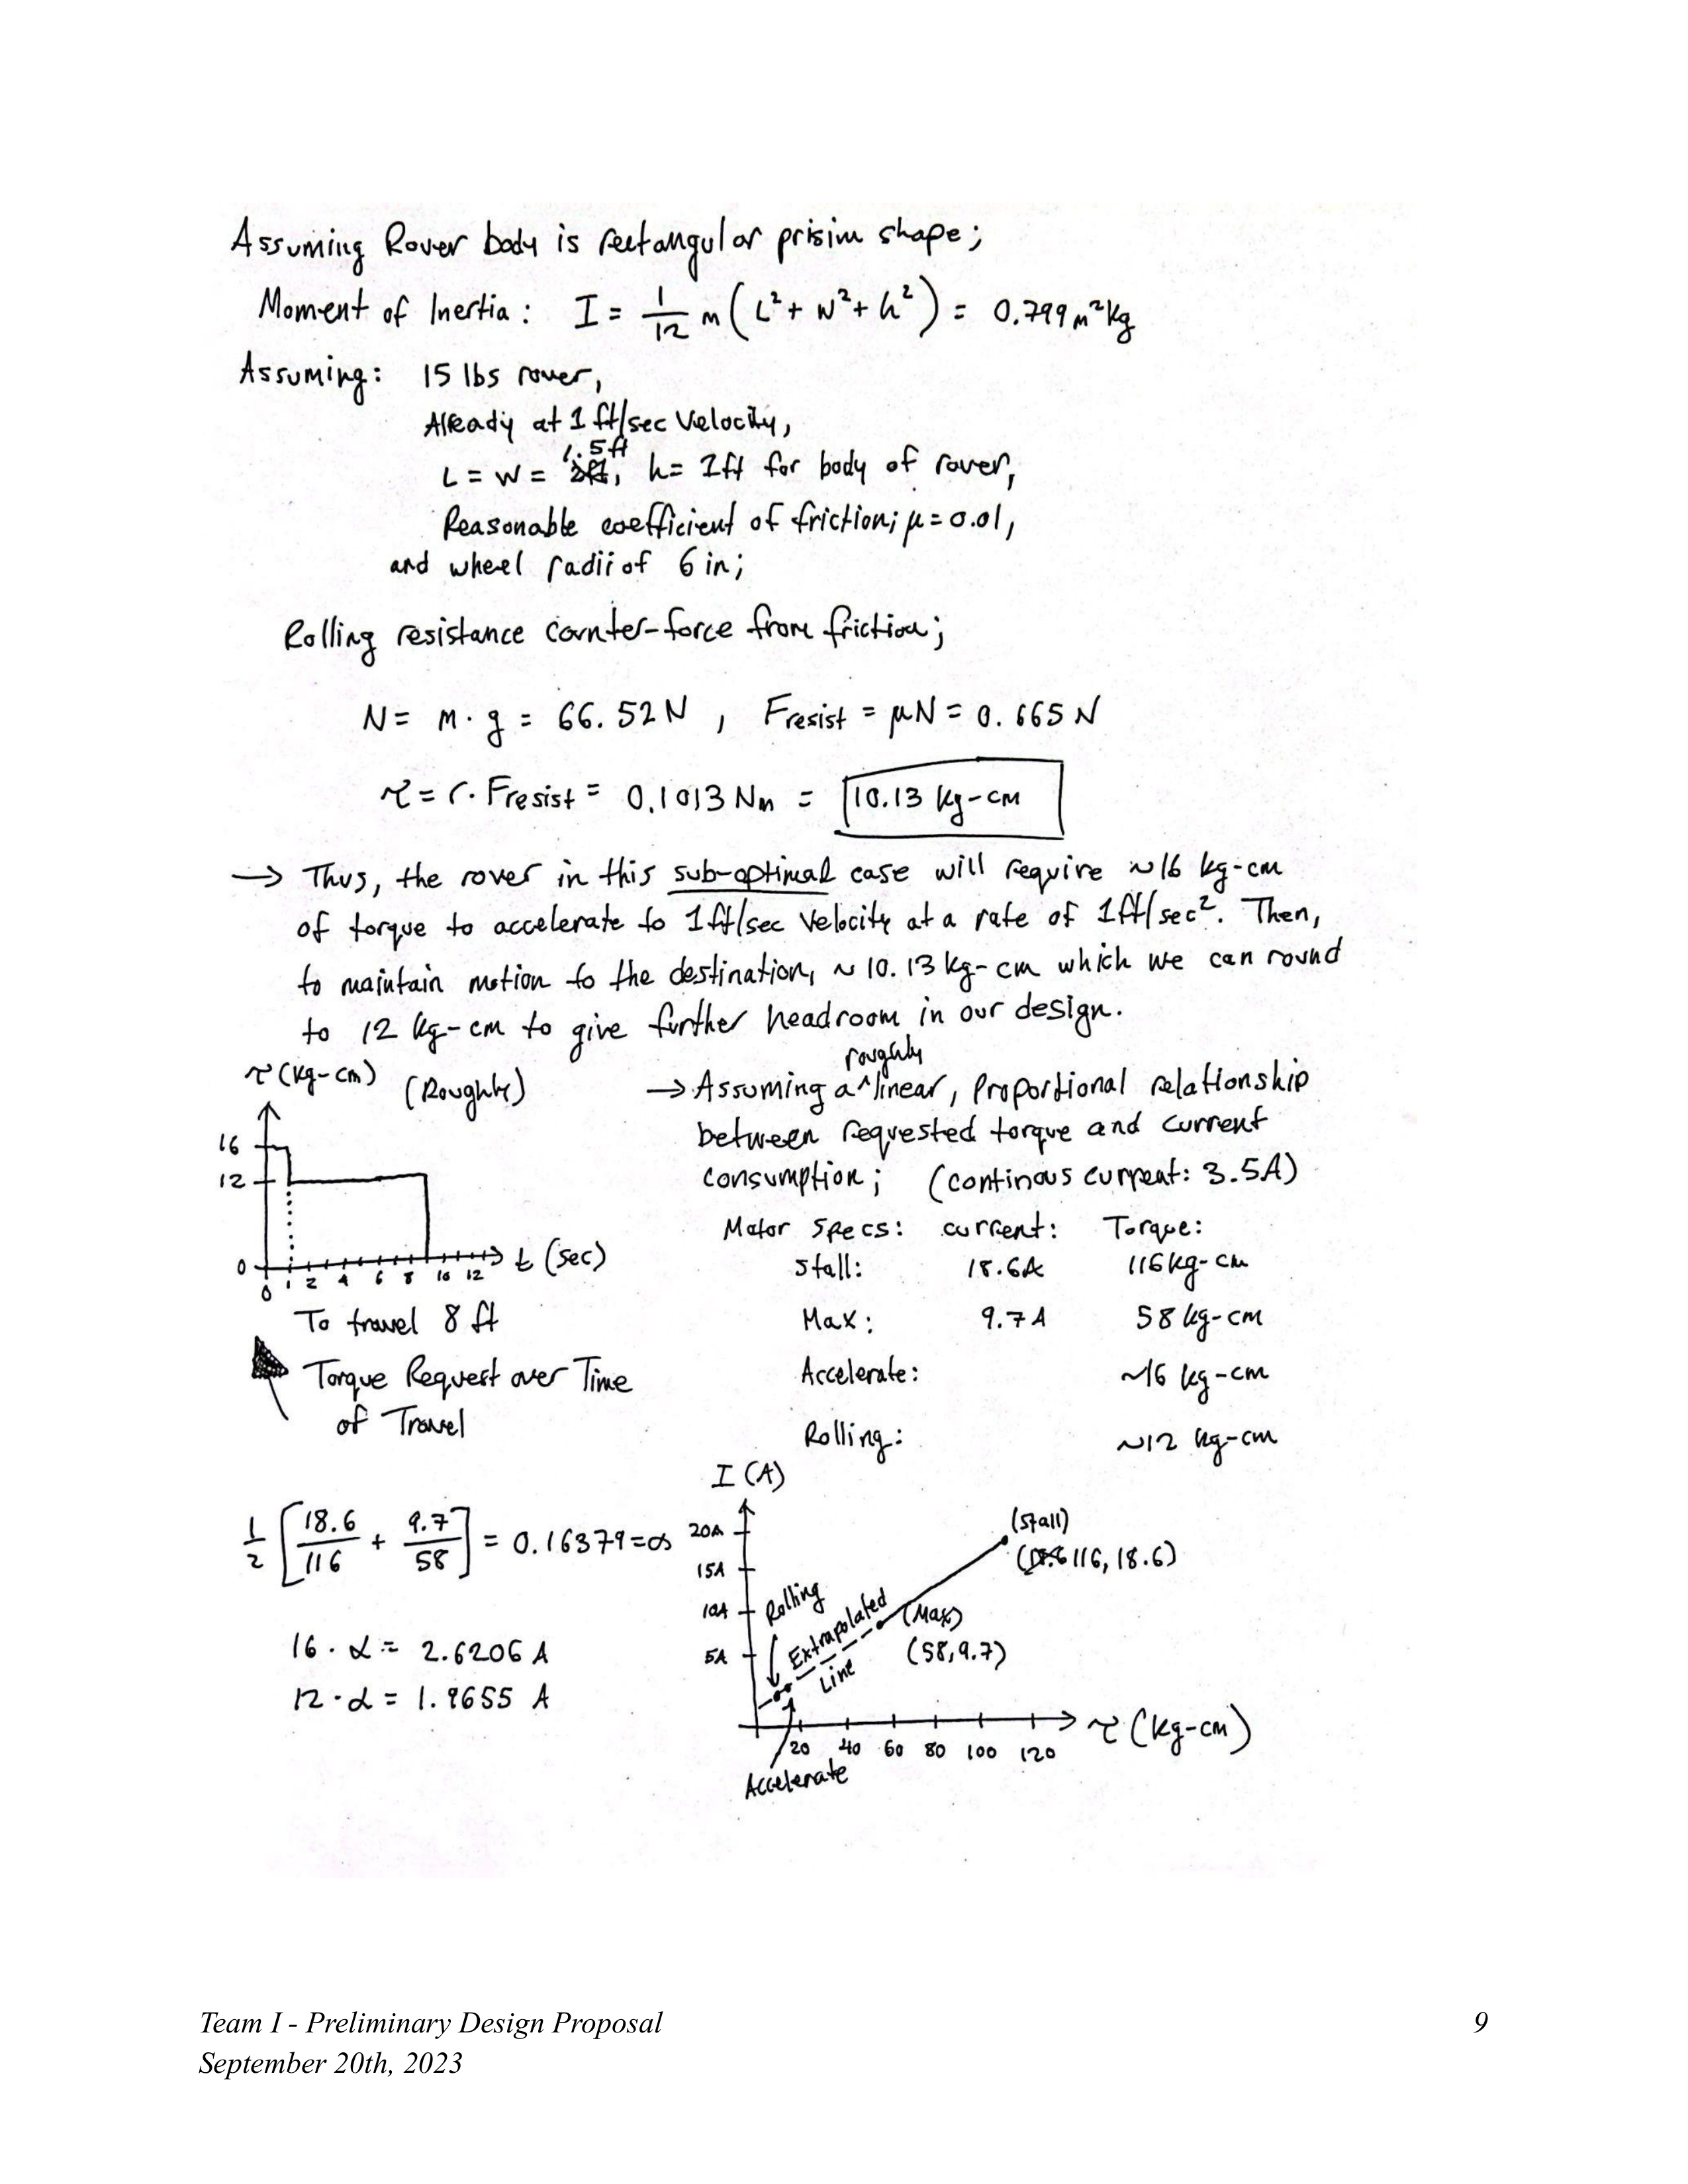 Assuming Rover body is rectangular prisim shape;
Moment of Inertia: I = 1/12 m (L² + w² + h²) = 0.799 m²kg
Assuming: 15 lbs rover,
Already at 1 ft/sec Velocity,
1.5ft
L = w = 2ft, h= 1ft for body of rover,
Reasonable coefficient of friction; μ = 0.01,
and wheel radii of 6 in;
Rolling resistance counter-force from friction;
N = m · g = 66.52 N , Fresist = μN = 0.665 N
τ = r · Fresist = 0.1013 Nm = 10.13 kg-cm
→ Thus, the rover in this sub-optimal case will require ~16 kg-cm
of torque to accelerate to 1 ft/sec Velocity at a rate of 1 ft/sec². Then,
to maintain motion to the destination, ~10.13 kg-cm which we can round
to 12 kg-cm to give further headroom in our design.
τ (kg-cm) (Roughly)
16
12
0
0 1 2 4 6 8 10 12
t (sec)
To travel 8 ft
Torque Request over Time
of Travel
roughly
→ Assuming a ^ linear, proportional relationship
between requested torque and current
consumption; (continous current: 3.5A)
Motor Specs: current: Torque:
Stall: 18.6A 116 kg-cm
Max: 9.7 A 58 kg-cm
Accelerate: ~16 kg-cm
Rolling: ~12 kg-cm
1/2 [18.6/116 + 9.7/58] = 0.16379 = α
16 · α = 2.6206 A
12 · α = 1.9655 A
I (A)
20A
15A
10A
5A
Rolling
Extrapolated
Line
(Max)
(58, 9.7)
(Stall)
(116, 18.6)
20 40 60 80 100 120
τ (kg-cm)
Accelerate
Team I - Preliminary Design Proposal 9
September 20th, 2023